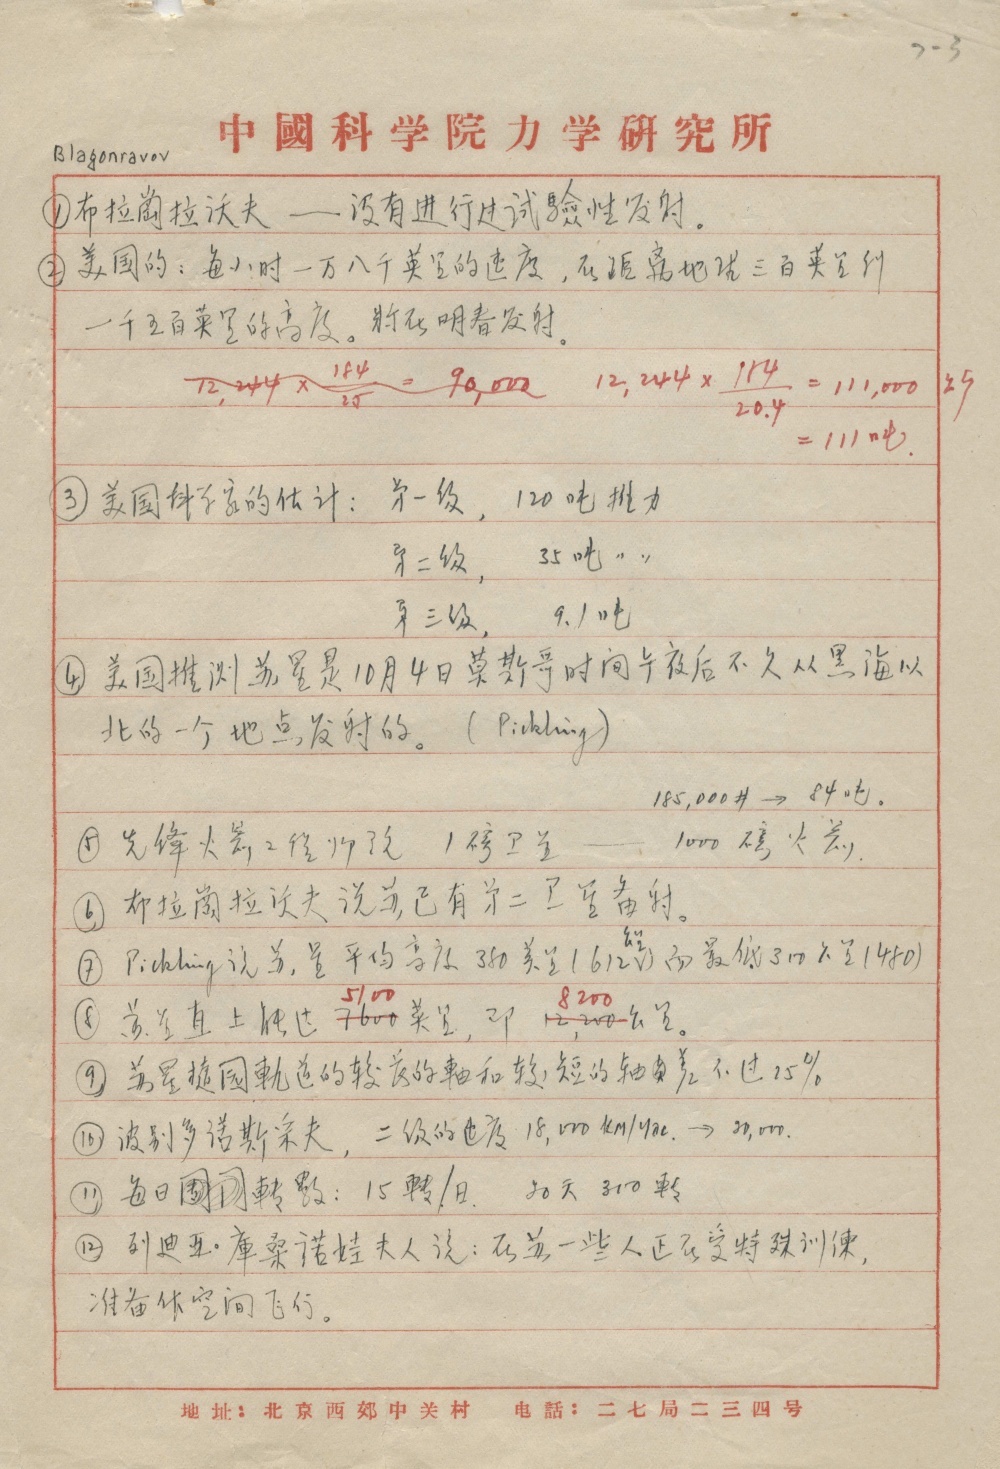 7-3
中國科学院力学研究所
Blagonravov
①布拉崗拉沃夫 —— 没有进行过试驗性发射。
②美国的：每小时一万八千英里的速度，在距离地球三百英里到
一千五百英里的高度。将在明春发射。
12,244 × 184/25 = 90,000 12,244 × 184/20.4 = 111,000 公斤
= 111吨.
③美国科学家的估计： 第一级， 120吨推力
第二级， 35吨 〃 〃
第三级， 9.1吨
④美国推测苏星是10月4日莫斯哥时间午夜后不久从黑海以
北的一个地点发射的。 (Pickling)
185,000# → 84吨.
⑤先锋火箭工程师说 1磅卫星 —— 1000磅火箭.
⑥布拉崗拉沃夫说苏已有第二卫星备射。
⑦Pickling说苏星平均高度380英里(612公里)而最低300公里(480)
5100 8200
⑧苏星直上能达7600英里，即12,200公里。
⑨苏星遶國軌道的较長的軸和较短的轴負差不过25%
⑩波别多诺斯采夫， 二级的速度 18,000 km/час. → 20,000.
⑪每日圈轉數： 15轉/日. 20天 300轉
⑫列迪亚·庫桑诺娃夫人说：在苏一些人正在受特殊训练，
准备作空间飞行。
地址：北京西郊中关村 电話：二七局二三四号